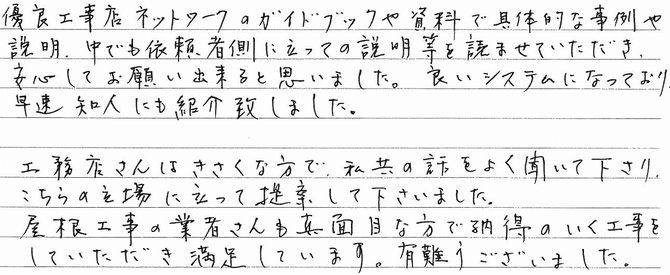 優良工事店ネットワークのガイドブックや資料で具体的な事例や
説明、中でも依頼者側に立っての説明等を読ませていただき、
安心してお願い出来ると思いました。良いシステムになっており、
早速知人にも紹介致しました。
工務店さんはきさくな方で、私共の話をよく聞いて下さり、
こちらの立場に立って提案して下さいました。
屋根工事の業者さんも真面目な方で納得のいく工事を
していただき満足しています。有難うございました。